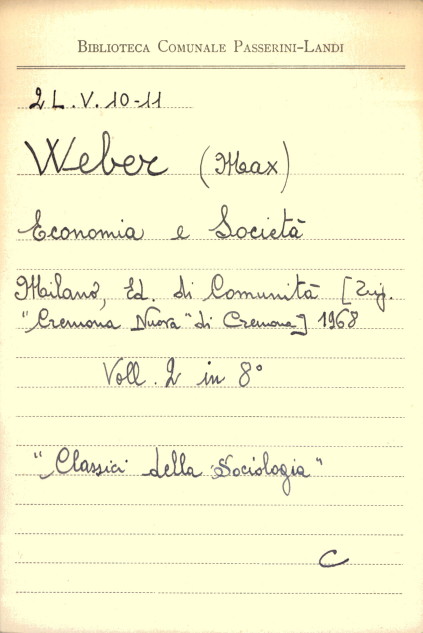 BIBLIOTECA COMUNALE PASSERINI-LANDI
2L.V.10-11
Weber (Max)
Economia e Società
Milano, Ed. di Comunità [
"Cremona Nuova" di Cremona] 1968
Voll. 2 in 8°
"Classici della Sociologia"
C